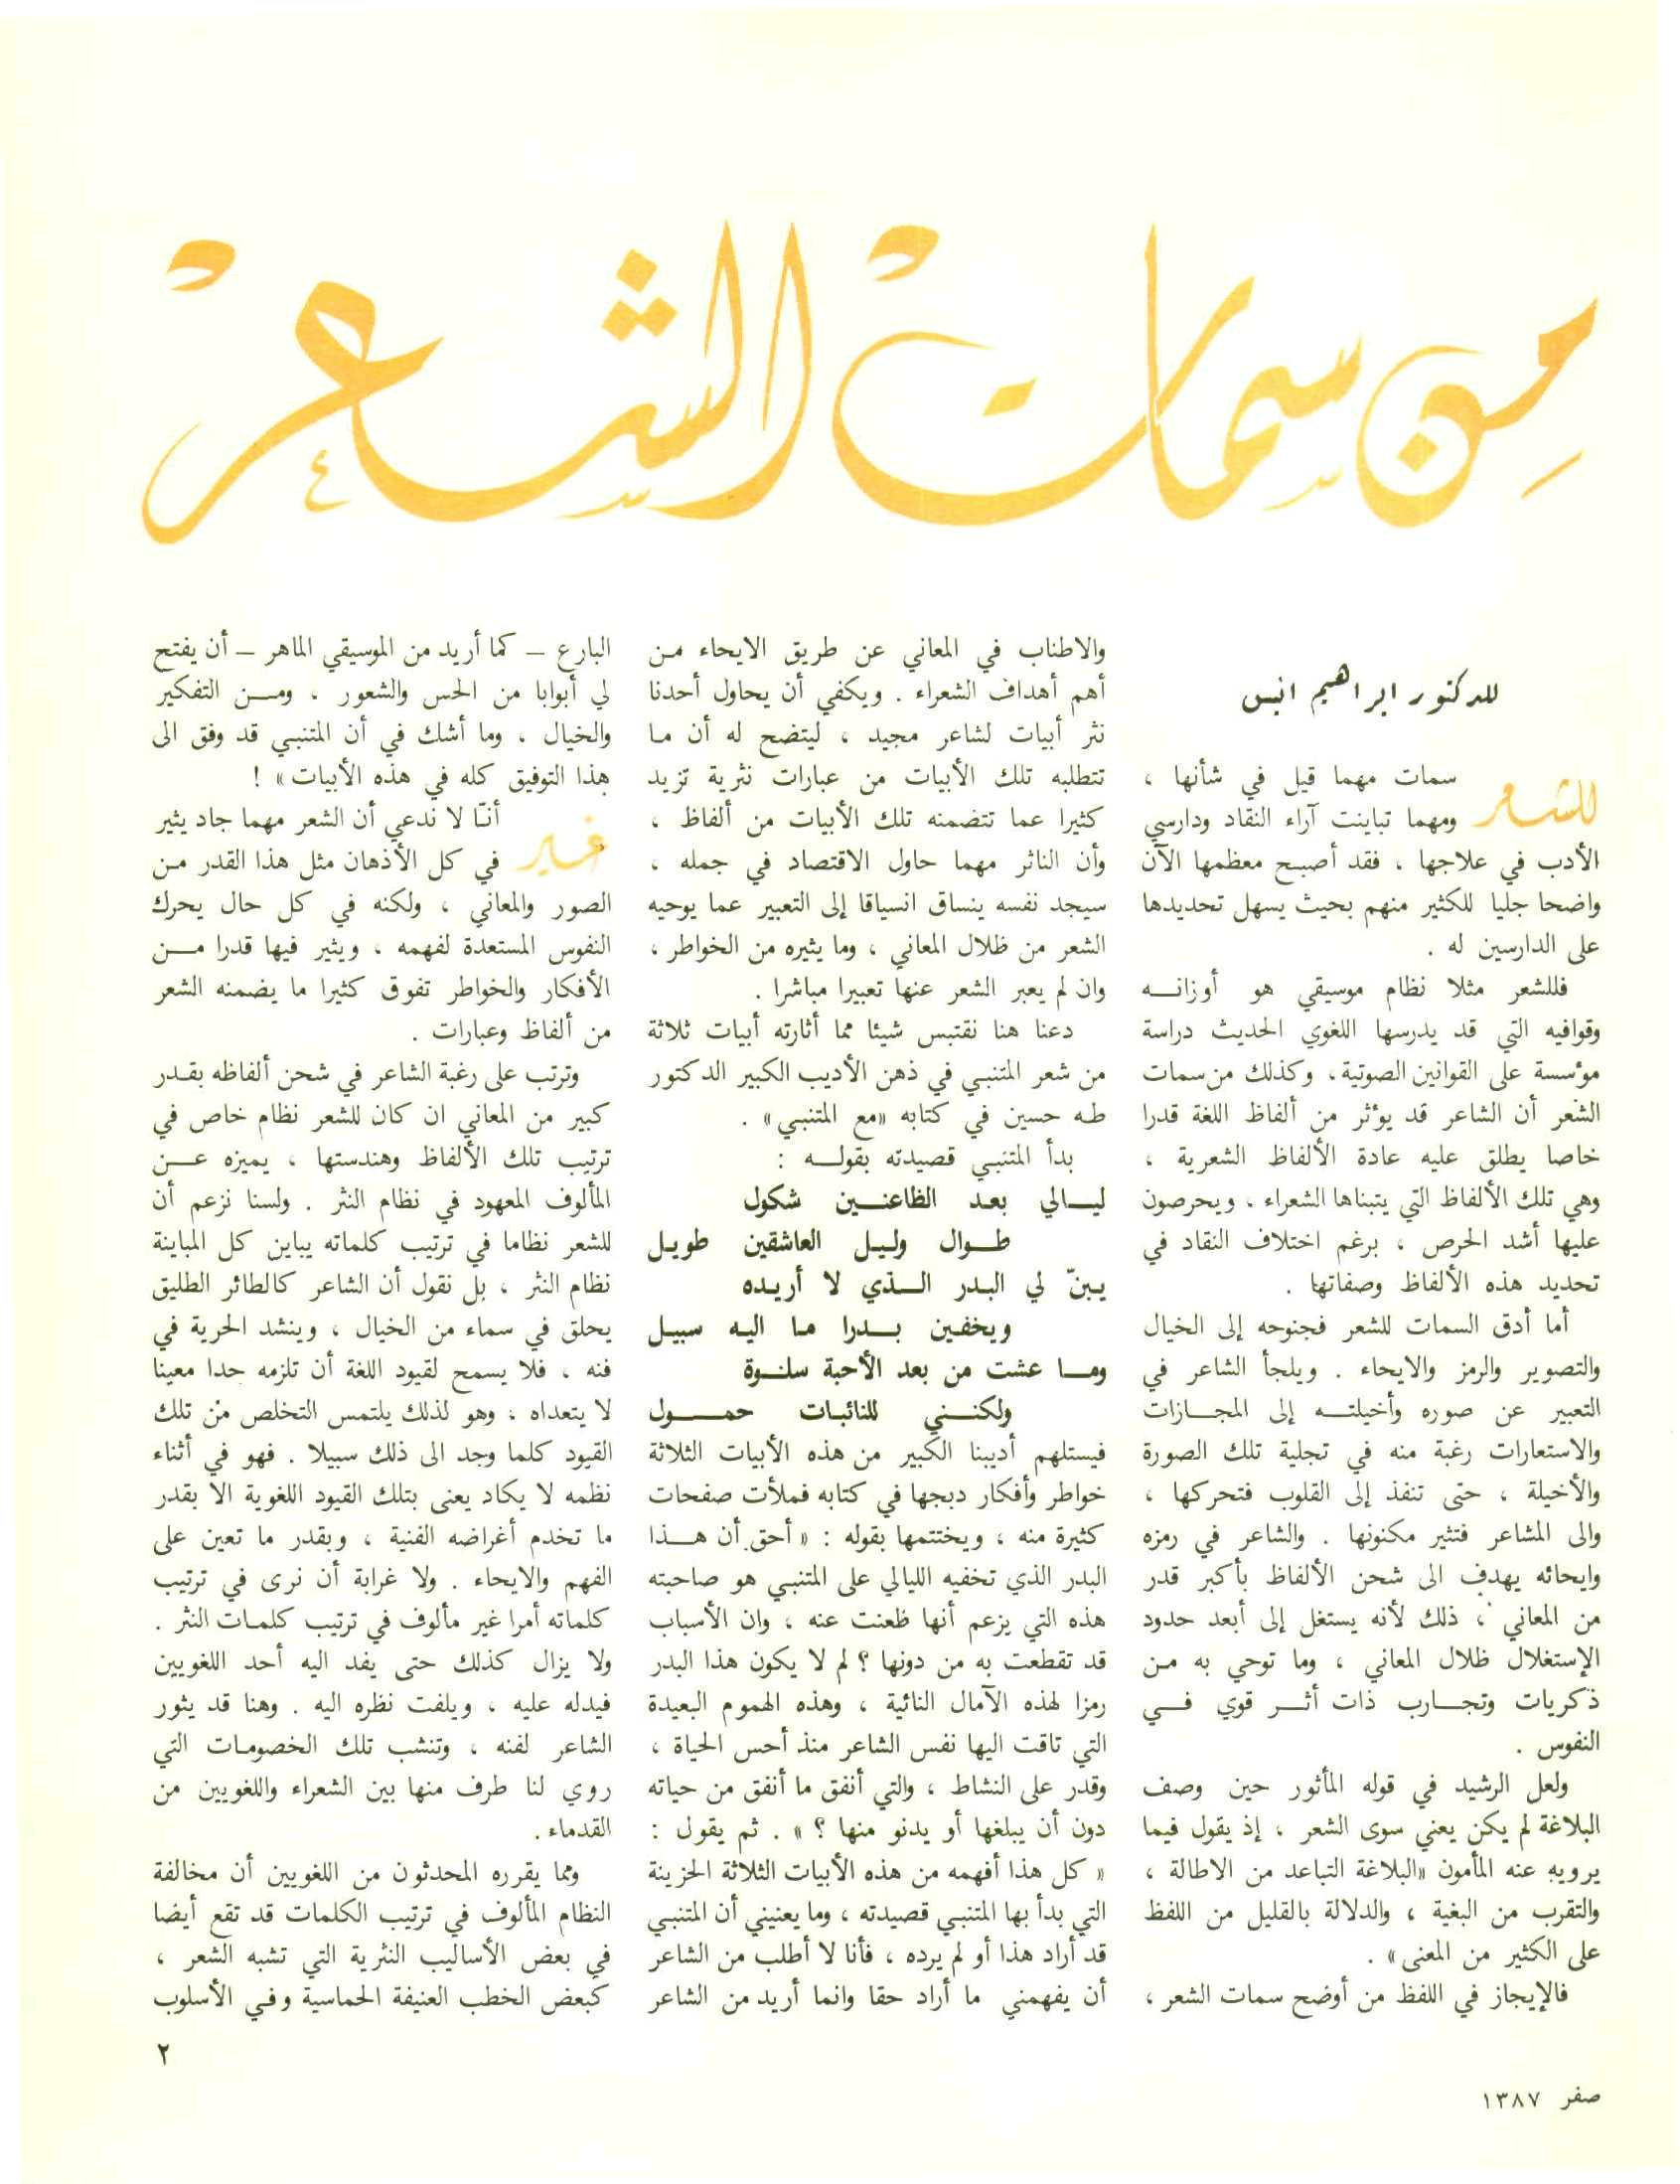 من سمات الشعر
للدكتور ابراهيم انيس
للشعر سمات مهما قيل في شأنها ،
ومهما تباينت آراء النقاد ودارسي
الأدب في علاجها ، فقد أصبح معظمها الآن
واضحا جليا للكثير منهم بحيث يسهل تحديدها
على الدارسين له .
فللشعر مثلا نظام موسيقي هو أوزانه
وقوافيه التي قد يدرسها اللغوي الحديث دراسة
مؤسسة على القوانين الصوتية، وكذلك من سمات
الشعر أن الشاعر قد يؤثر من ألفاظ اللغة قدرا
خاصا يطلق عليه عادة الألفاظ الشعرية ،
وهي تلك الألفاظ التي يتبناها الشعراء ، ويحرصون
عليها أشد الحرص ، برغم اختلاف النقاد في
تحديد هذه الألفاظ وصفاتها .
أما أدق السمات للشعر فجنوحه إلى الخيال
والتصوير والرمز والايحاء . ويلجأ الشاعر في
التعبير عن صوره وأخيلته إلى المجازات
والاستعارات رغبة منه في تجلية تلك الصورة
والأخيلة ، حتى تنفذ إلى القلوب فتحركها ،
والى المشاعر فتثير مكنونها . والشاعر في رمزه
وايحائه يهدف الى شحن الألفاظ بأكبر قدر
من المعاني ، ذلك لأنه يستغل إلى أبعد حدود
الإستغلال ظلال المعاني ، وما توحي به من
ذكريات وتجارب ذات أثر قوي في
النفوس .
ولعل الرشيد في قوله المأثور حين وصف
البلاغة لم يكن يعني سوى الشعر ، إذ يقول فيما
يرويه عنه المأمون «البلاغة التباعد من الاطالة ،
والتقرب من البغية ، والدلالة بالقليل من اللفظ
على الكثير من المعنى» .
فالإيجاز في اللفظ من أوضح سمات الشعر ،
والاطناب في المعاني عن طريق الايحاء من
أهم أهداف الشعراء . ويكفي أن يحاول أحدنا
نثر أبيات لشاعر مجيد ، ليتضح له أن ما
تتطلبه تلك الأبيات من عبارات نثرية تزيد
كثيرا عما تتضمنه تلك الأبيات من ألفاظ ،
وأن الناثر مهما حاول الاقتصاد في جمله ،
سيجد نفسه ينساق انسياقا إلى التعبير عما يوحيه
الشعر من ظلال المعاني ، وما يثيره من الخواطر ،
وان لم يعبر الشعر عنها تعبيرا مباشرا .
دعنا هنا نقتبس شيئا مما أثارته أبيات ثلاثة
من شعر المتنبي في ذهن الأديب الكبير الدكتور
طه حسين في كتابه «مع المتنبي» .
بدأ المتنبي قصيدته بقوله :
ليالي بعد الظاعنين شكول
طوال وليل العاشقين طويل
يبنّ لي البدر الذي لا أريده
ويخفين بدرا ما اليه سبيل
وما عشت من بعد الأحبة سلوة
ولكنني للنائبات حمول
فيستلهم أديبنا الكبير من هذه الأبيات الثلاثة
خواطر وأفكار دبجها في كتابه فملأت صفحات
كثيرة منه ، ويختتمها بقوله : « أحق أن هذا
البدر الذي تخفيه الليالي على المتنبي هو صاحبته
هذه التي يزعم أنها ظعنت عنه ، وان الأسباب
قد تقطعت به من دونها ؟ لم لا يكون هذا البدر
رمزا لهذه الآمال النائية ، وهذه الهموم البعيدة
التي تاقت اليها نفس الشاعر منذ أحس الحياة ،
وقدر على النشاط ، والتي أنفق ما أنفق من حياته
دون أن يبلغها أو يدنو منها ؟ » . ثم يقول :
« كل هذا أفهمه من هذه الأبيات الثلاثة الحزينة
التي بدأ بها المتنبي قصيدته ، وما يعنيني أن المتنبي
قد أراد هذا أو لم يرده ، فأنا لا أطلب من الشاعر
أن يفهمني ما أراد حقا وانما أريد من الشاعر
البارع – كما أريد من الموسيقي الماهر – أن يفتح
لي أبوابا من الحس والشعور ، ومن التفكير
والخيال ، وما أشك في أن المتنبي قد وفق الى
هذا التوفيق كله في هذه الأبيات» !
غير أنّا لا ندعي أن الشعر مهما جاد يثير
في كل الأذهان مثل هذا القدر من
الصور والمعاني ، ولكنه في كل حال يحرك
النفوس المستعدة لفهمه ، ويثير فيها قدرا من
الأفكار والخواطر تفوق كثيرا ما يضمنه الشعر
من ألفاظ وعبارات .
وترتب على رغبة الشاعر في شحن ألفاظه بقدر
كبير من المعاني ان كان للشعر نظام خاص في
ترتيب تلك الألفاظ وهندستها ، يميزه عن
المألوف المعهود في نظام النثر . ولسنا نزعم أن
للشعر نظاما في ترتيب كلماته يباين كل المباينة
نظام النثر ، بل نقول أن الشاعر كالطائر الطليق
يحلق في سماء من الخيال ، وينشد الحرية في
فنه ، فلا يسمح لقيود اللغة أن تلزمه حدا معينا
لا يتعداه ، وهو لذلك يلتمس التخلص من تلك
القيود كلما وجد الى ذلك سبيلا . فهو في أثناء
نظمه لا يكاد يعنى بتلك القيود اللغوية الا بقدر
ما تخدم أغراضه الفنية ، وبقدر ما تعين على
الفهم والايحاء . ولا غرابة أن نرى في ترتيب
كلماته أمرا غير مألوف في ترتيب كلمات النثر .
ولا يزال كذلك حتى يفد اليه أحد اللغويين
فيدله عليه ، ويلفت نظره اليه . وهنا قد يثور
الشاعر لفنه ، وتنشب تلك الخصومات التي
روي لنا طرف منها بين الشعراء واللغويين من
القدماء.
ومما يقرره المحدثون من اللغويين أن مخالفة
النظام المألوف في ترتيب الكلمات قد تقع أيضا
في بعض الأساليب النثرية التي تشبه الشعر ،
كبعض الخطب العنيفة الحماسية وفي الأسلوب
٢
صفر ١٣٨٧